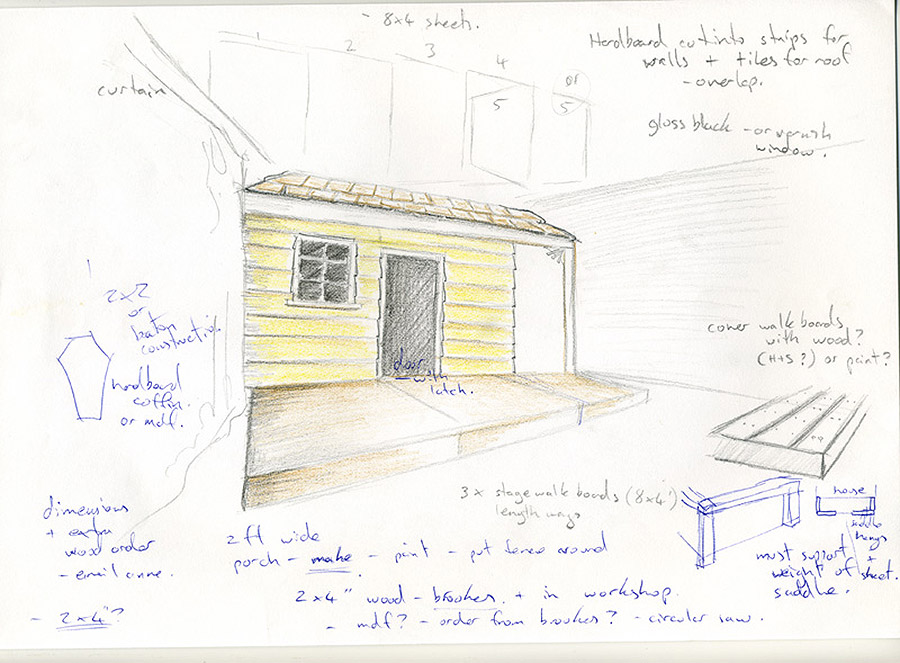 - 8x4 sheets.
1
2
3
4
5
or
5
curtain
Hardboard cut into strips for
walls + tiles for roof
- overlap.
gloss black - or varnish
window.
2x2
or
baton
construction.
hardboard
coffin.
or mdf.
door
- with
latch.
cover walk boards
with wood?
(H+S?) or paint?
3 x stage walk boards (8x4')
length ways
horse
saddle
hangs
+
sheet.
must support
weight of
saddle.
dimensions
+ extra
wood order
- email anne.
- 2x4"?
2 ft wide
porch - make - paint - put fence around
2x4" wood - brookes. + in workshop.
- mdf? - order from brookes? - circular saw.